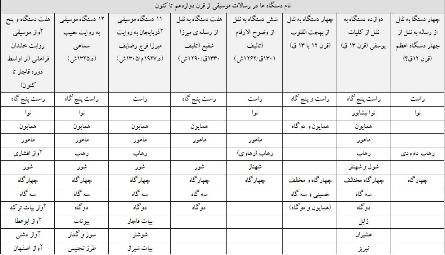 نام دستگاه ها در رسالات موسیقی از قرن دوازدهم تا کنون
چهار دستگا به نقل از رساله به نقل از چهار دستگاه اعظم (قرن ۱۲ق؟)
دوازده دستگاه به نقل از کلیات یوسفی (قرن ۱۳ ق)
چهار دستگاه به نقل از بهجت القلوب (قرن ۱۲ یا ۱۳ ق)
شش دستگاه به نقل از وضوح الارقام (تألیف
هفت دستگاه به نقل از رساله ی میرزا شفیع (تألیف
۱۱ دستگاه موسیقی آذربایجان به روایت میرزا فرج رضایف
۱۲ دستگاه موسیقی به روایت حبیب سماعی (م۱۳۲۵ش)
هفت دستگاه و پنج آواز موسیقی روایت خاندان فراهانی (از اواسط دوره قاجار تا کنون)
راست راست پنج گاه راست و پنج گاه راست راست پنج گاه راست راست پنج گاه راست پنج گاه
نوا نوا نیشابور نوا نوا نوا
همایون همایون و دوگاه همایون همایون همایون همایون
ماهور ماهور ماهور ماهور ماهور ماهور
رهاب داودی رهاب رهاب رهاب آواز افشاری
شور و شهناز شهناز شور شور شور شور
چهارگاه چهارگاه مختلف چهارگاه و مخلف چهارگاه چهارگاه چهارگاه چهارگاه چهارگاه
سه گاه حسینی و سه گاه سه گاه سه گاه سه گاه سه گاه
دوگاه (همایون و دوگاه) دوگاه دوگاه دوگاه آواز بیات ترک
زابل بیات قاجار بیات آواز ابوعطا
عشیران شوشتر سوز و گداز آواز دشتی
نیریز بیات شیراز طرز تجنیس آواز اصفهان